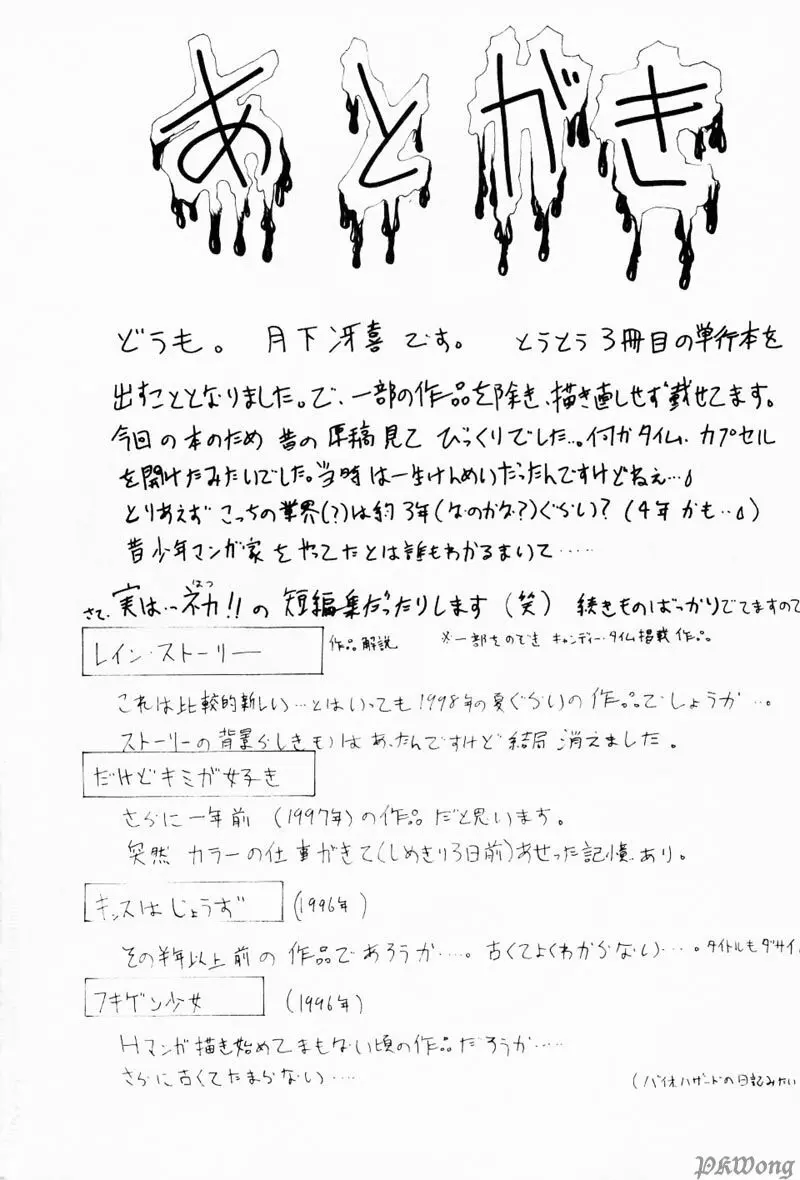 あとがき
どうも。 月下冴喜です。 とうとう3冊目の単行本を
出すこととなりました。で、一部の作品を除き、描き直しせず載せてます。
今回の本のため昔の原稿見てびっくりでした…。何かタイム・カプセル
を開けたみたいでした。当時は一生けんめいだったんですけどねえ…
とりあえずこっちの業界(?)は約3年(なのかな?)ぐらい?(4年かも…)
昔少年マンガ家をやってたとは誰もわかるまいて……
さて、実は…初!!の短編集だったりします(笑) 続きものばっかりでてますので
はつ
レイン・ストーリー 作品解説 ※一部をのぞき キャンディータイム掲載作品。
これは比較的新しい…とはいっても1998年の夏ぐらいの作品でしょうか…。
ストーリーの背景らしきものはあったんですけど結局消えました。
だけどキミが好き
さらに一年前 (1997年)の作品だと思います。
突然カラーの仕事がきて(しめきり3日前)あせった記憶あり。
キッスはじょうず (1996年)
その半年以上前の作品であろうか……。古くてよくわからない…。タイトルもダサイ。
フキゲン少女 (1996年)
Hマンガ描き始めてまもない頃の作品だろうか……
さらに古くてたまらない…… (バイオハザードの日記みたい
PKWong